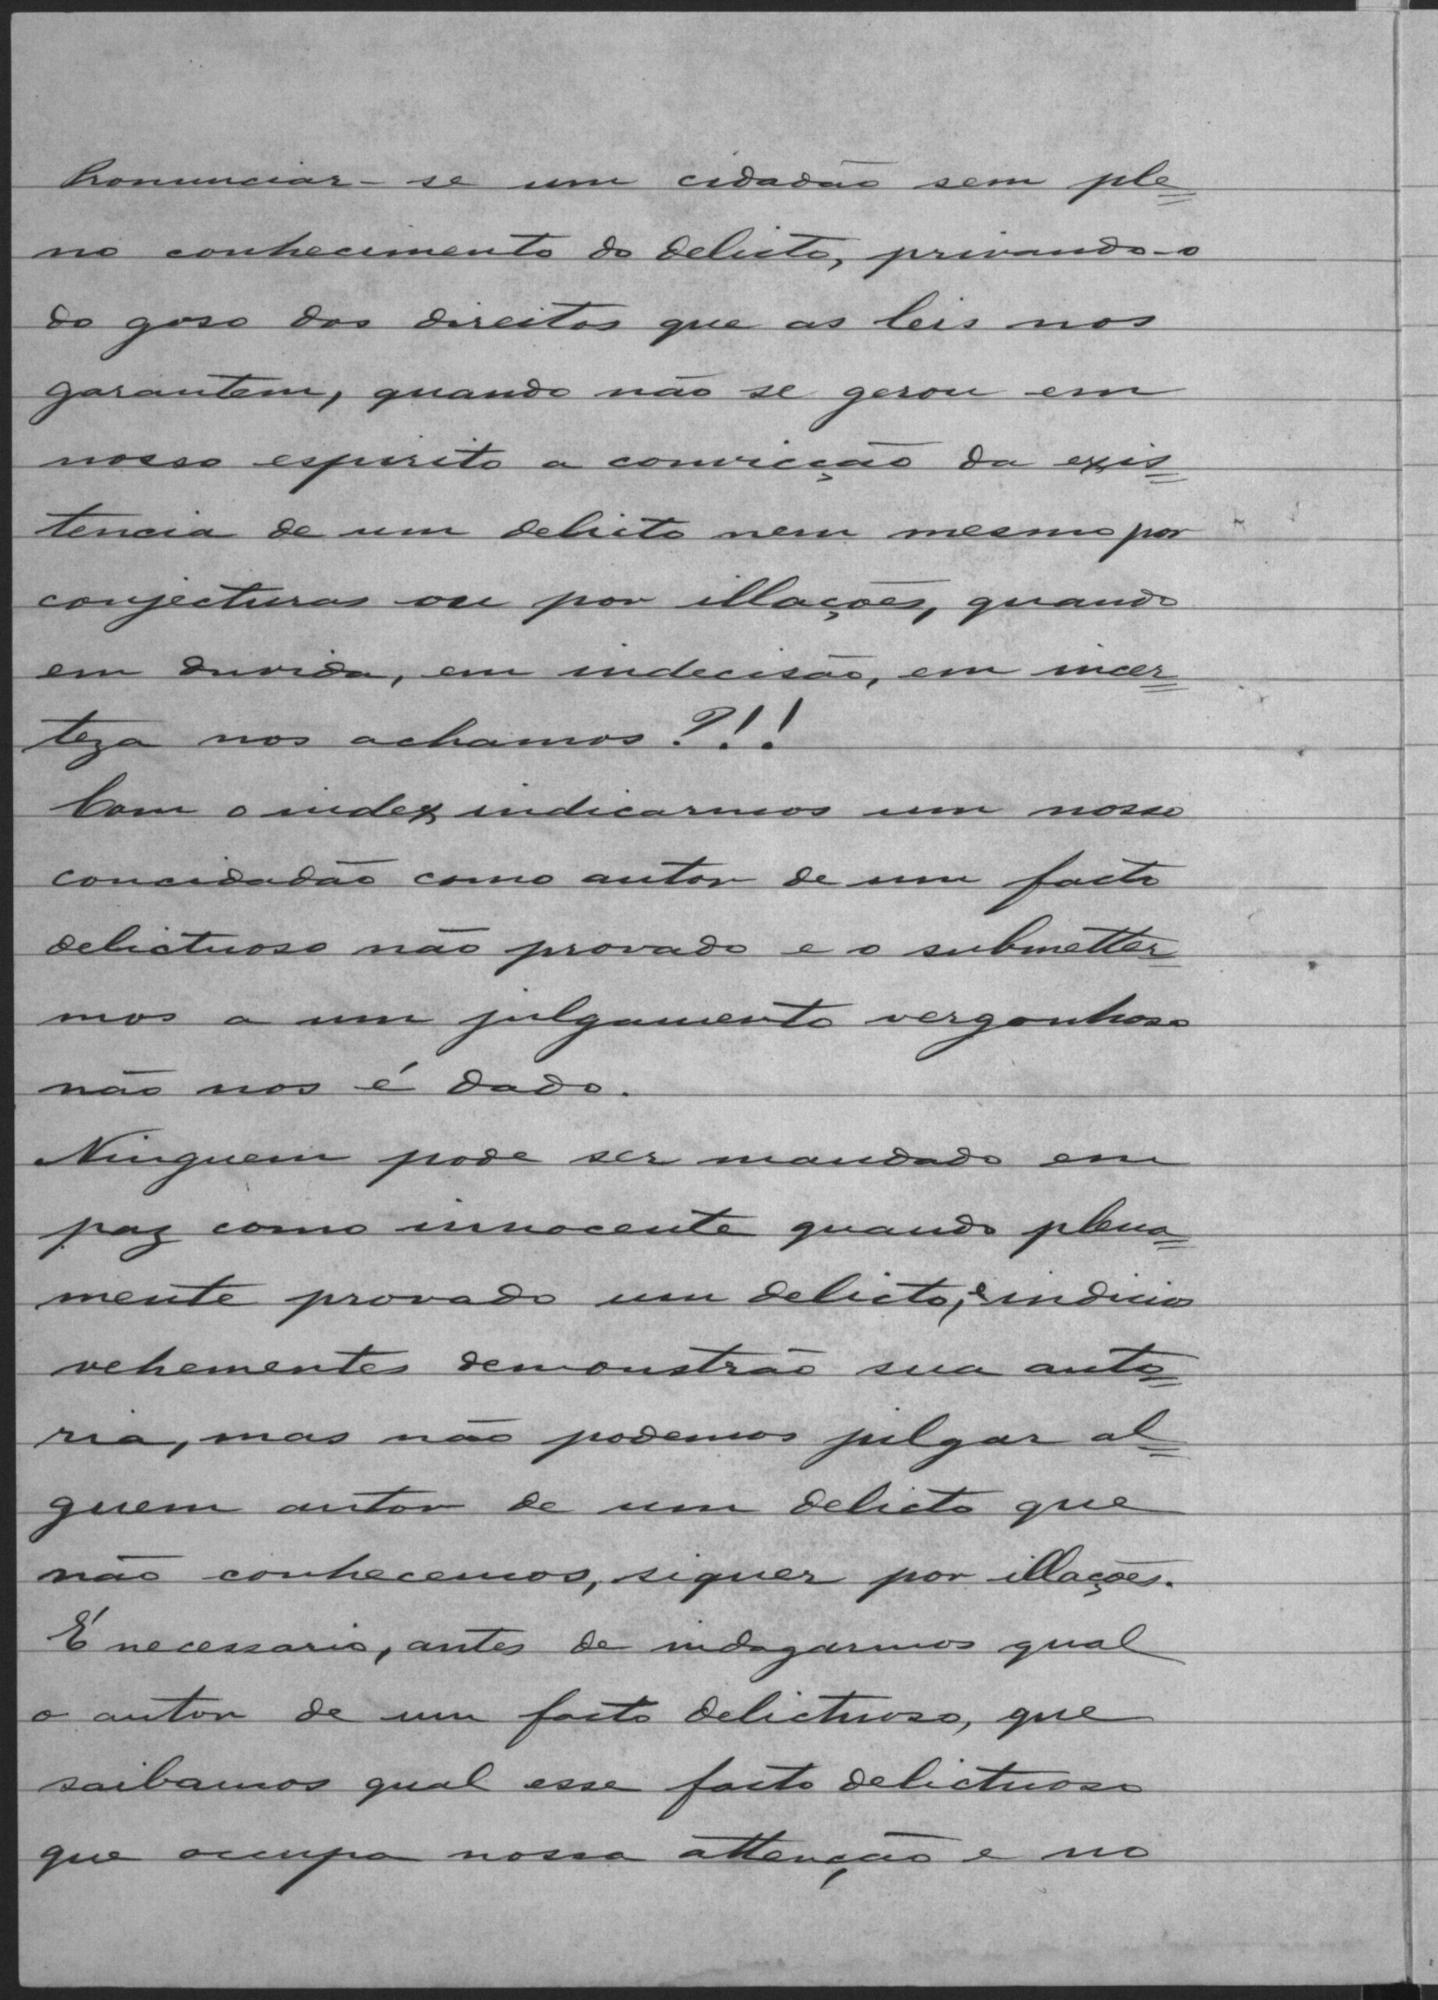 Pronunciar-se um cidadão sem ple=
no conhecimento do delicto, privando-o
do goso dos direitos que as leis nos
garantem, quando não se gerou em
nosso espirito a convicção da exis=
tencia de um delicto nem mesmo por
conjecturas ou por illações, quando
em duvida, em indecisão, em incer=
teza nos achamos?!!
Com o index indicarmos um nosso
concidadão como autor de um facto
delictuoso não provado e o submetter=
mos a um julgamento vergonhoso
não nos é dado.
Ninguem pode ser mandado em
paz como innocente quando plena=
mente provado um delicto, e indicios
vehementes demonstrão sua auto=
ria, mas não podemos julgar al=
guem autor de um delicto que
não conhecemos, siquer por illações.
É necessario, antes de indagarmos qual
o autor de um facto delictuoso, que
saibamos qual esse facto delictuoso
que occupa nossa attenção e no